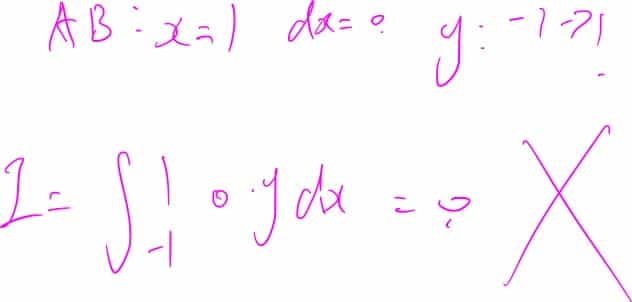 AB: x=1 dx=0 y: -1→1
I= ∫_{-1}^{1} 0·y dx = 0 X